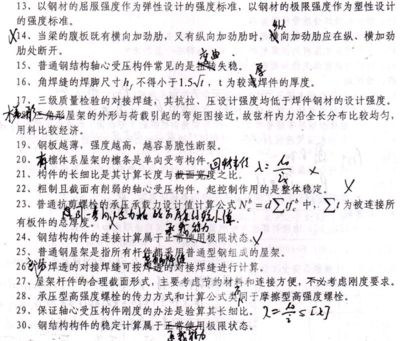 13、以钢材的屈服强度作为弹性设计的强度标准，以钢材的极限强度作为塑性设计
的强度标准。
纵
14、当梁的腹板既有横向加劲肋，又有纵向加劲肋时，横向加劲肋应在纵、横加劲
肋处断开。
弯曲
15、普通钢结构轴心受压构件常见的是扭转失稳。
厚
16、角焊缝的焊脚尺寸hf不得小于1.5√t，t为较薄焊件的厚度。
17、三级质量检验的对接焊缝，其抗拉、压设计强度均低于焊件钢材的设计强度。
梯形
18、三角形屋架的外形与荷载引起的弯矩图接近，故弦杆内力沿全长分布比较均匀，
用料比较经济。
19、钢板越薄，强度越高，越容易脆性断裂。
有
20、檩体系屋架的檩条是单向受弯构件。
回转半径
21、构件的长细比是其计算长度与截面宽度之比。
22、粗制且截面有削弱的轴心受压构件，起控制作用的是整体稳定。 X
23、普通抗剪螺栓的承压承载力设计值计算公式 N_c^b = d∑tf_c^b 中，∑t 为被连接所
有板件的总厚度。
承载能力
24、钢结构构件的连接计算属于正常使用极限状态。
25、普通钢屋架是指所有杆件都采用普通型钢组成的屋架。
26、的对接焊缝可按焊缝进行计算。
27、屋架杆件的合理截面形式，主要考虑节约材料和连接方便，不必考虑刚度要求。
不
28、承压型高强度螺栓的传力方式和计算公式同于摩擦型高强度螺栓。
29、保证轴心受压构件刚度的办法是验算其长细比。 ≤[λ]
30、钢结构构件的稳定计算属于正常使用极限状态。
承载能力